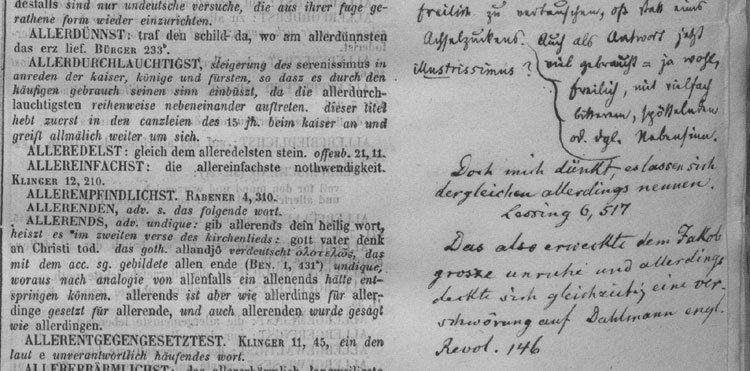 desfalls sind nur undeutsche versuche, die aus ihrer fuge ge-
rathene form wieder einzurichten.
ALLERDÜNNST: traf den schild da, wo am allerdünnsten
das erz lief. BÜRGER 233ᵇ.
ALLERDURCHLAUCHTIGST, steigerung des serenissimus in
anreden der kaiser, könige und fürsten, so dasz es durch den
häufigen gebrauch seinen sinn einbüszt, da die allerdurch-
lauchtigsten reihenweise nebeneinander auftreten. dieser titel
hebt zuerst in den canzleien des 15 jh. beim kaiser an und
greift allmälich weiter um sich.
ALLEREDELST: gleich dem alleredelsten stein. offenb. 21, 11.
ALLEREINFACHST: die allereinfachste nothwendigkeit.
KLINGER 12, 210.
ALLEREMPFINDLICHST. RABENER 4, 310.
ALLERENDEN, adv. s. das folgende wort.
ALLERENDS, adv. undique: gib allerends dein heilig wort,
heiszt es im zweiten verse des kirchenlieds: gott vater denk
an Christi tod. das goth. allandjô verdeutscht ὁλοτελῶς, das
mit dem acc. sg. gebildete allen ende (BEN. 1, 431ᵃ) undique,
woraus nach analogie von allenfalls ein allenends hätte ent-
springen können. allerends ist aber wie allerdings für aller-
dinge gesetzt für allerende, und auch allerenden wurde gesagt
wie allerdingen.
ALLERENTGEGENGESETZTEST. KLINGER 11, 45, ein den
laut e unverantwortlich häufendes wort.
ALLERERBÄRMLICHST: das allererbärmlich langweiligste
freilich zu vertauschen, oft statt eines
Achselzuckens.
illustrissimus?
Auch als Antwort jetzt
viel gebraucht = ja wohl,
freilich, mit vielfach
bitterem, spöttelnden
od. dgl. Nebensinn.
Doch mich dünkt, es lassen sich
dergleichen allerdings nennen.
Lessing 6, 517
Das also erweckte dem Jakob
grosze unruhe und allerdings
deckte sich gleichzeitig eine ver-
schwörung auf Dahlmann engl.
Revol. 146